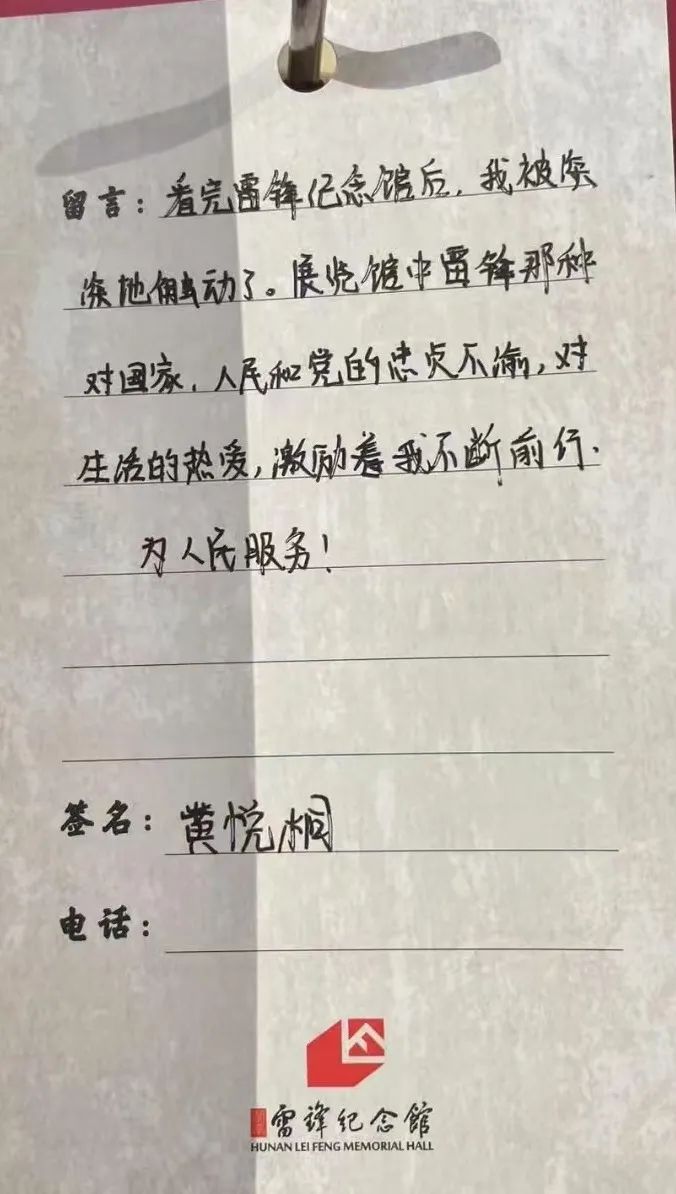 留言：看完雷锋纪念馆后，我被深
深地触动了。展览馆中雷锋那种
对国家、人民和党的忠贞不渝，对
生活的热爱，激励着我不断前行、
为人民服务！
签名：黄悦桐
电话：
雷锋纪念館
HUNAN LEI FENG MEMORIAL HALL